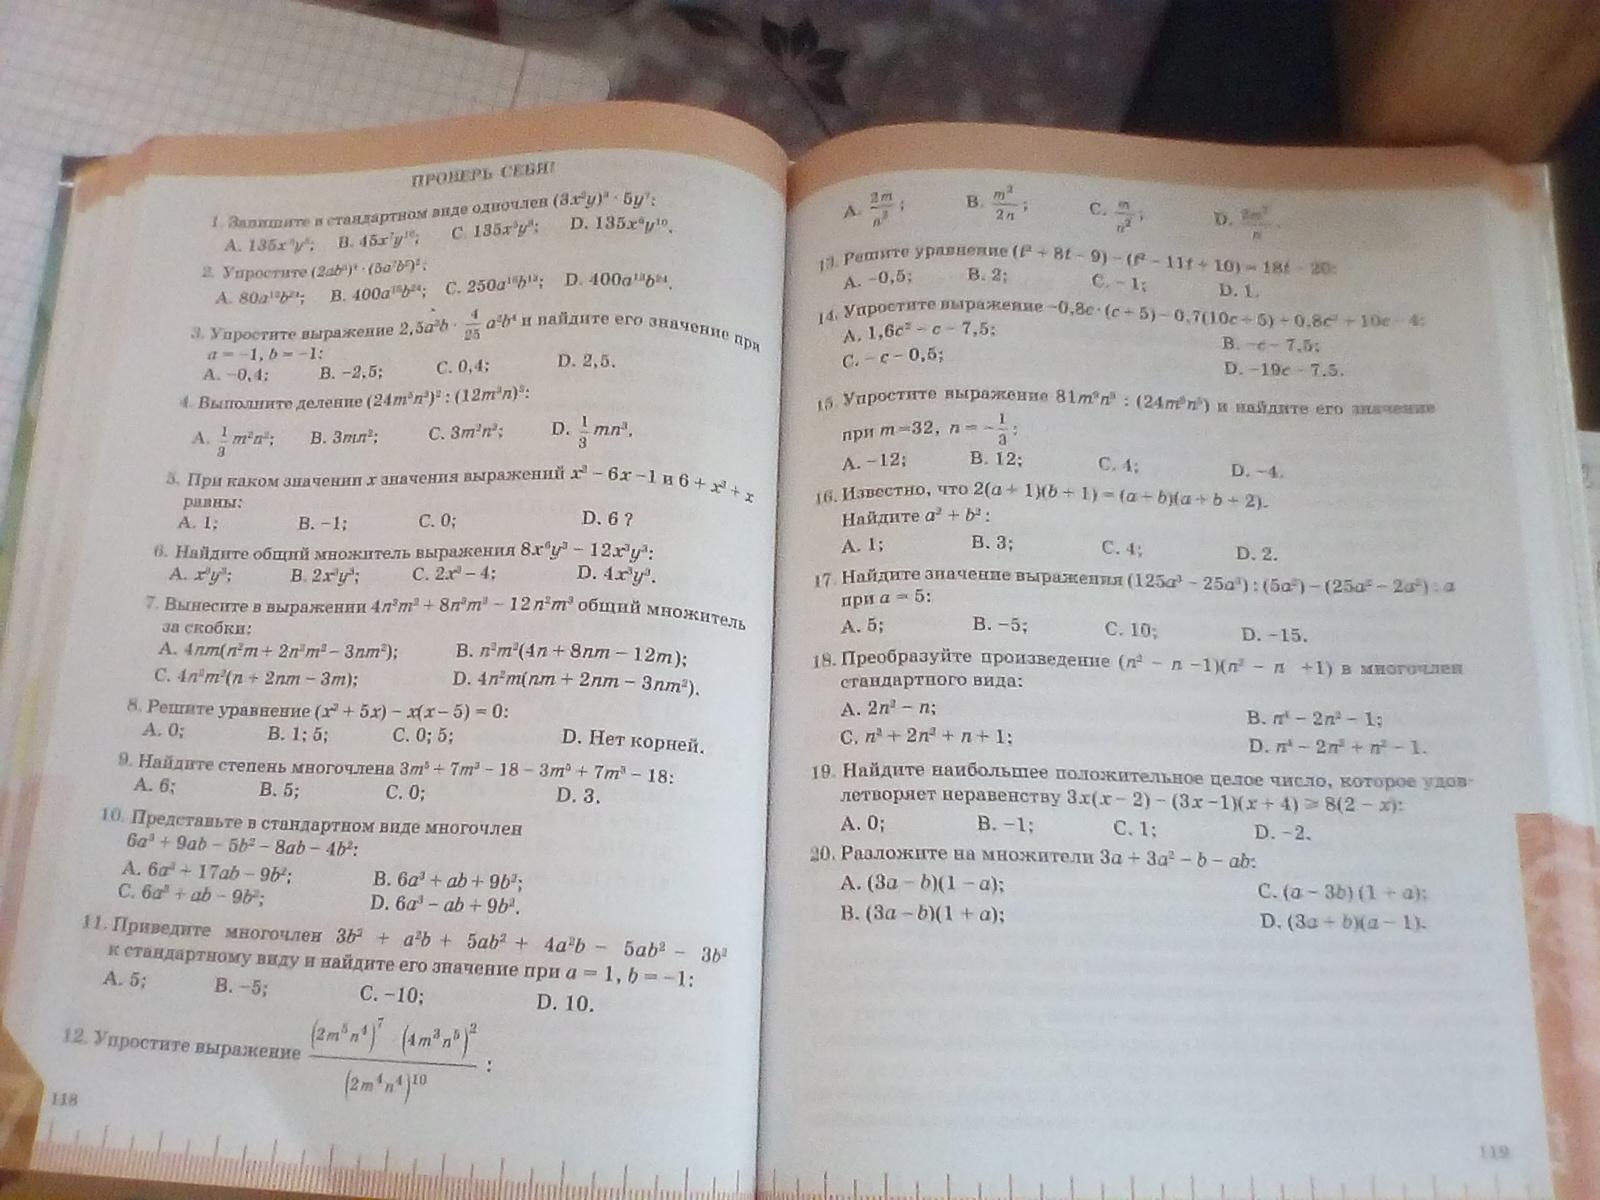 ПРОВЕРЬ СЕБЯ!
1. Запишите в стандартном виде одночлен (3x²y)³ · 5y⁷:
B. 45x⁷y¹⁰; D. 135x⁶y¹⁰.
2. Упростите
3. Упростите выражение 2,5a³b · 4/25 a²b⁴ и найдите его значение при
a = −1, b = −1:
A. −0,4; B. −2,5; C. 0,4; D. 2,5.
4. Выполните деление
A. 1/3 m²n²; B. 3mn²; C. 3m²n²; D. 1/3 mn³.
5. При каком значении x значения выражений x³ − 6x −1 и 6 + x³ + x
равны:
A. 1; B. −1; C. 0; D. 6 ?
6. Найдите общий множитель выражения 8x⁶y³ − 12x³y³:
A. x³y³; B. 2x³y³; C. 2x³ − 4; D. 4x³y³.
7. Вынесите в выражении 4n³m² + 8n³m³ − 12n²m³ общий множитель
за скобки:
A. 4nm(n²m + 2n²m² − 3nm²); B. n²m²(4n + 8nm − 12m);
C. 4n²m²(n + 2nm − 3m); D. 4n²m(nm + 2nm − 3nm²).
8. Решите уравнение (x² + 5x) − x(x − 5) = 0:
A. 0; B. 1; 5; C. 0; 5; D. Нет корней.
9. Найдите степень многочлена 3m⁵ + 7m³ − 18 − 3m⁵ + 7m³ − 18:
A. 6; B. 5; C. 0; D. 3.
10. Представьте в стандартном виде многочлен
6a³ + 9ab − 5b² − 8ab − 4b²:
A. 6a³ + 17ab − 9b²; B. 6a³ + ab + 9b²;
C. 6a³ + ab − 9b²; D. 6a³ − ab + 9b².
11. Приведите многочлен 3b² + a²b + 5ab² + 4a²b − 5ab² − 3b²
к стандартному виду и найдите его значение при a = 1, b = −1:
A. 5; B. −5; C. −10; D. 10.
12. Упростите выражение (2m⁵n⁴)⁷ (4m³n⁵)² / (2m⁴n⁴)¹⁰ :
118
A. 2m/n²; B. m²/2n; C. m/n²; D. 2m²/n.
13. Решите уравнение (t² + 8t − 9) − (t² − 11t + 10) = 18t − 20:
A. −0,5; B. 2; C. −1; D. 1.
14. Упростите выражение −0,8c · (c + 5) − 0,7(10c + 5) + 0,8c² + 10c − 4:
A. 1,6c² − c − 7,5; B. −c − 7,5;
C. −c − 0,5; D. −19c − 7,5.
15. Упростите выражение и найдите его значение
при m=32, n = −1/3:
A. −12; B. 12; C. 4; D. −4.
16. Известно, что 2(a + 1)(b + 1) = (a + b)(a + b + 2).
Найдите a² + b²:
A. 1; B. 3; C. 4; D. 2.
17. Найдите значение выражения (125a³ − 25a⁴) : (5a²) − (25a² − 2a²) : a
при a = 5:
A. 5; B. −5; C. 10; D. −15.
18. Преобразуйте произведение (n² − n −1)(n² − n +1) в многочлен
стандартного вида:
A. 2n² − n; B. n⁴ − 2n² − 1;
C. n³ + 2n² + n + 1; D. n⁴ − 2n³ + n² − 1.
19. Найдите наибольшее положительное целое число, которое удов-
летворяет неравенству 3x(x − 2) − (3x −1)(x + 4) ⩾ 8(2 − x):
A. 0; B. −1; C. 1; D. −2.
20. Разложите на множители 3a + 3a² − b − ab:
A. (3a − b)(1 − a); C. (a − 3b) (1 + a);
B. (3a − b)(1 + a); D. (3a + b)(a − 1).
119